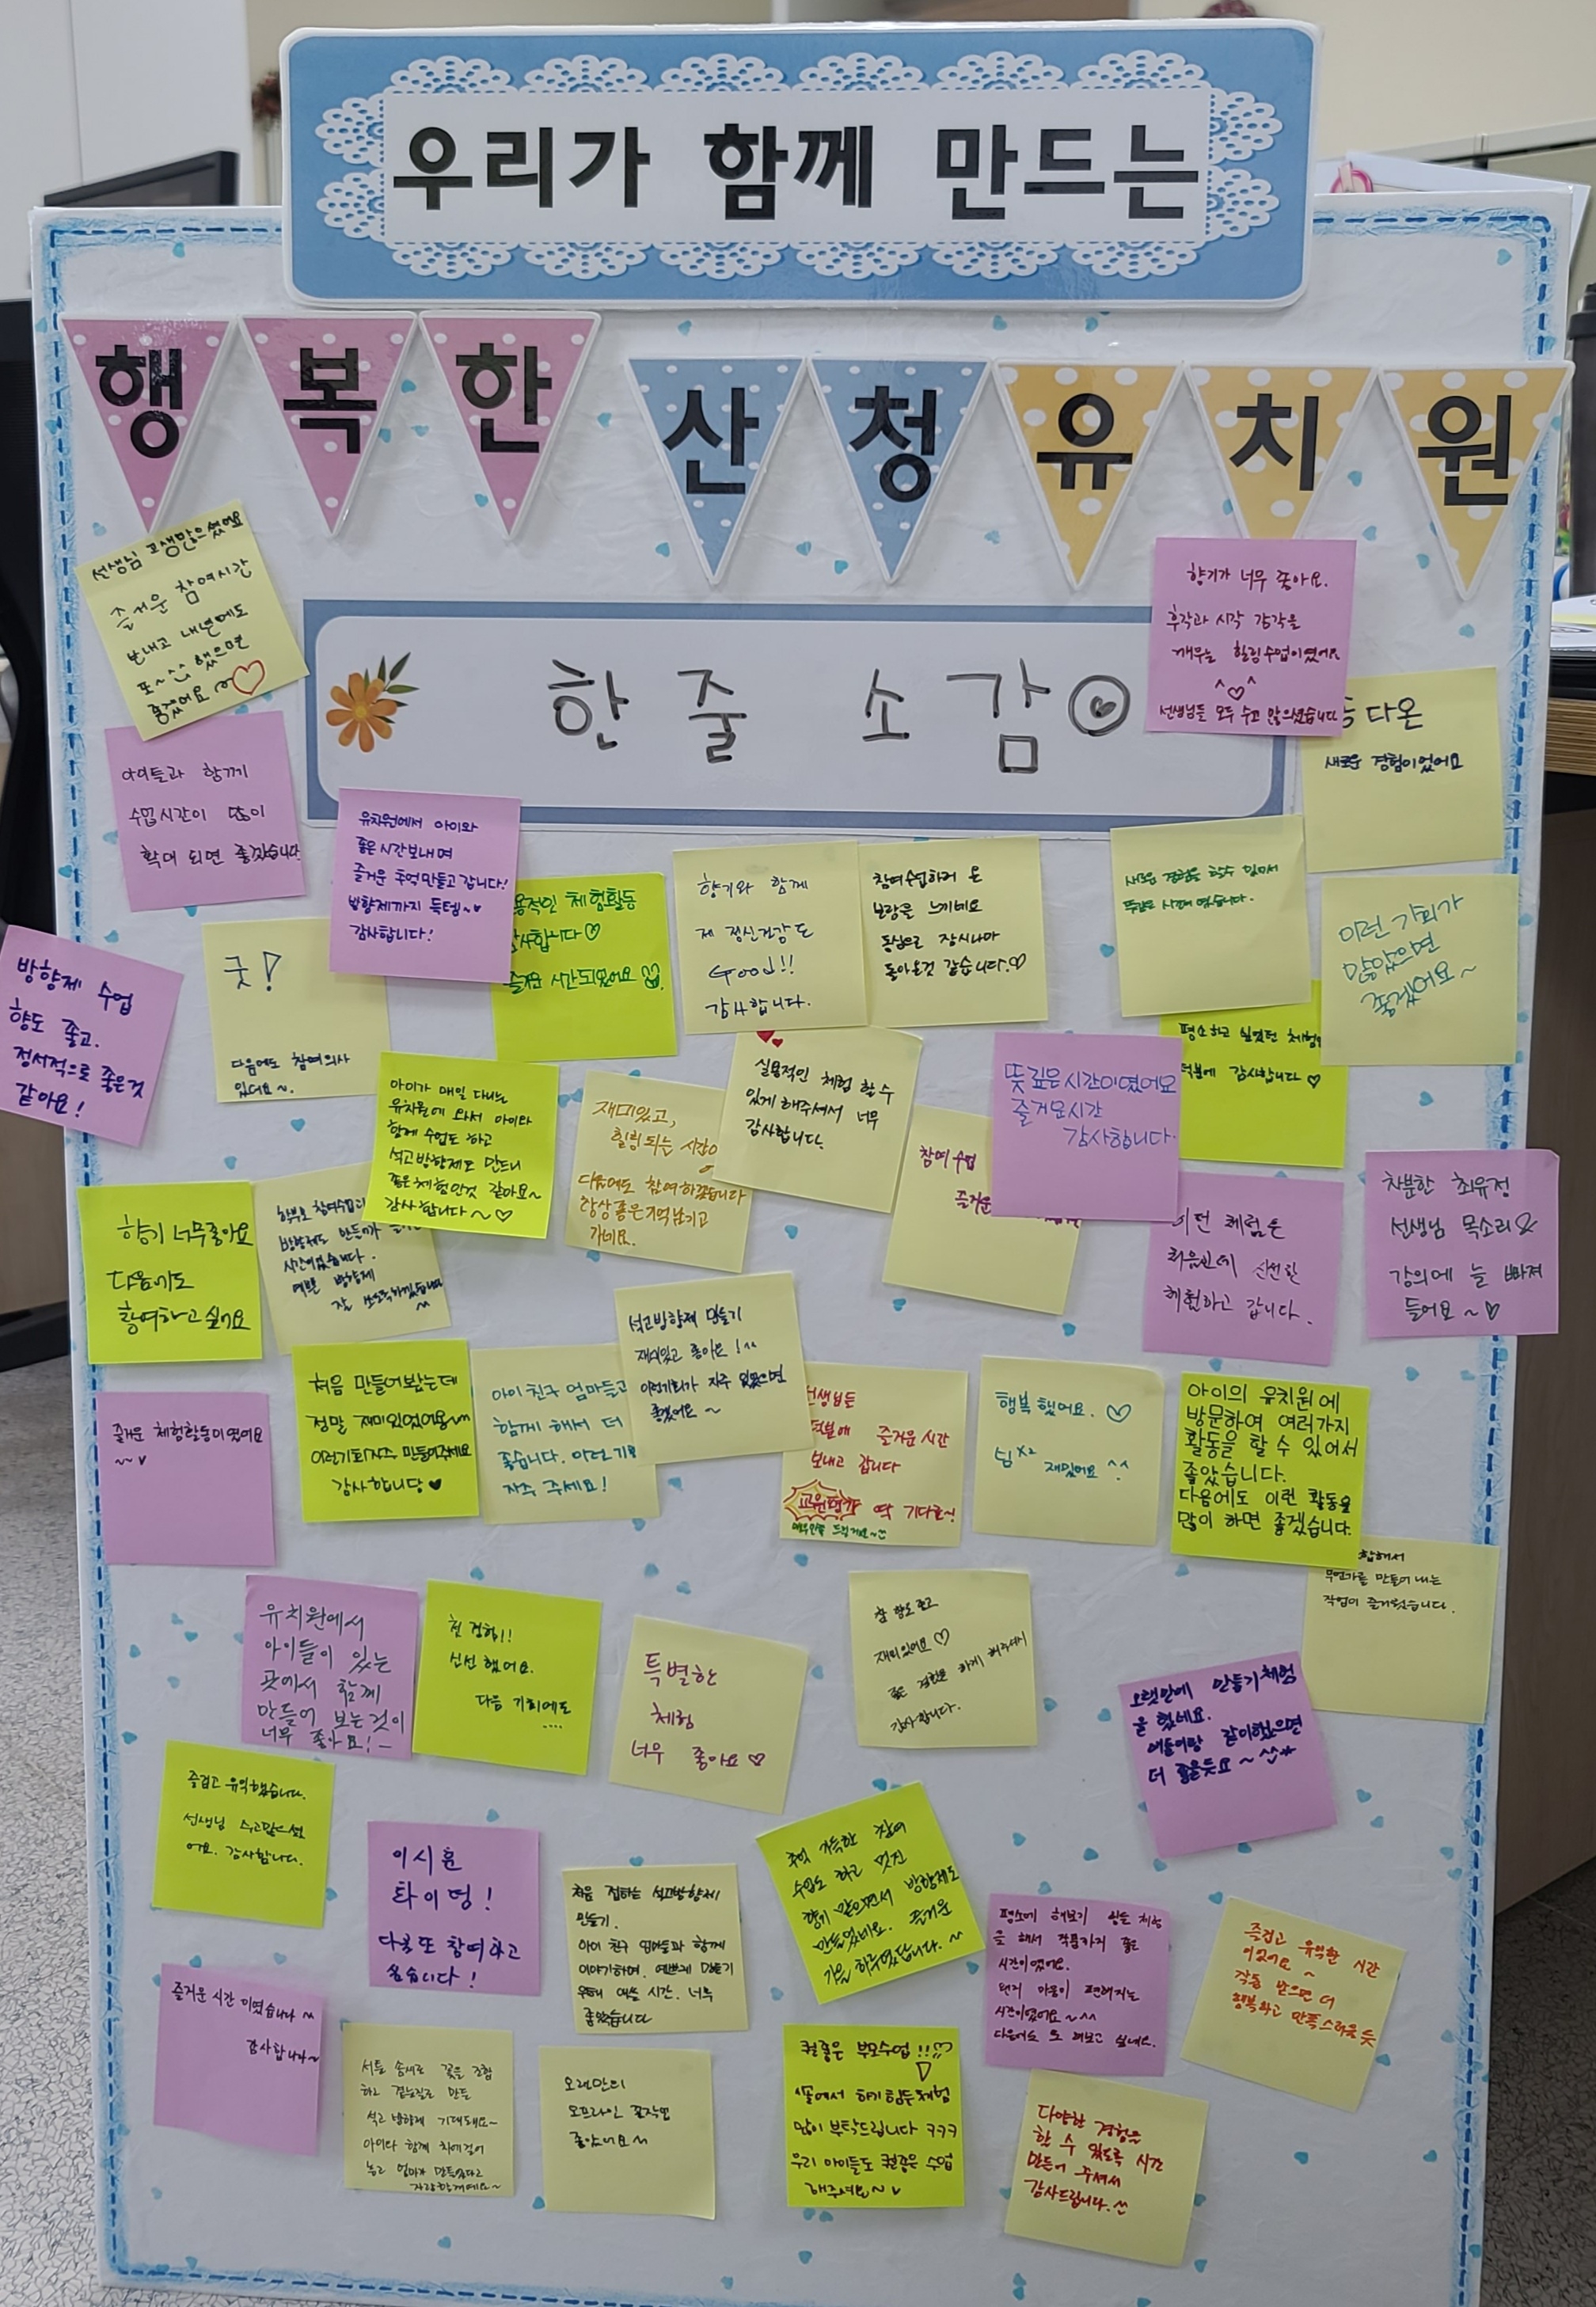 우리가 함께 만드는
행복한 산청유치원
한 줄 소감
선생님 고생많으셨어요
즐거운 참여시간
보내고 내년에도
했으면
좋겠어요
향기가 너무 좋아요.
후각과 시각 감각을
깨우는 힐링수업이였어요
^♡^
선생님들 모두 수고 많으셨습니다
다온
새로운 경험이었어요
아이들과 함께
수업시간이 많이
확대 되면 좋겠습니다
유치원에서 아이와
좋은시간보내며
즐거운 추억만들고 갑니다!
방향제까지 득템~♥
감사합니다!
용적인 체험활동
사합니다♡
즐거운 시간되었어요
향기와 함께
제 정신건강도
Good!!
감사합니다.
참여수업하러 온
보람을 느끼네요
동심으로 잠시나마
돌아온것 같습니다.♡
새로운 경험을 할수 있어서
뜻깊은 시간이 였습니다.
이런 기회가
많았으면
좋겠어요~
방향제 수업
향도 좋고.
정서적으로 좋은것
같아요!
굿!
다음에도 참여의사
있어요~.
아이가 매일 다니는
유치원에 와서 아이와
함께 수업도 하고
석고방향제도 만드니
좋은체험인것 같아요~
감사합니다~♡
재미있고,
힐링되는 시간
다음에도 참여하고싶습니다
항상좋은기억남기고
가네요.
실용적인 체험 할수
있게해주셔서 너무
감사합니다.
참여수업
즐거운
뜻깊은시간이였어요
즐거운시간
감사합니다.
평소하고 싶었던 체험
덕분에 감사합니다♡
이런 체험은
처음인데 신선한
체험하고 갑니다.
차분한 최유정
선생님 목소리와
강의에 늘 빠져
들어요~♡
향기 너무좋아요
다음에도
참여하고싶어요
학부모 참여수업
방향제도 만들어가
시간이었습니다.
예쁜 방향제
잘
석고방향제 만들기
재미있고 좋아요!^^
이런기회가 자주 있었으면
좋겠어요~
즐거운 체험활동이였어요
~~♥
처음 만들어봤는데
정말 재미있었어용~
이런기회자주 만들어주세요
감사합니당♥
아이친구 엄마들과
함께 해서 더
좋습니다. 이런기회
자주 주세요!
선생님들
덕분에 즐거운시간
보내고 갑니다
교원평가 딱 기다료~!
매우만족 드릴게요~
행복했어요.♡
넘x2 재밌어요^^
아이의 유치원에
방문하여 여러가지
활동을 할 수 있어서
좋았습니다.
다음에도 이런 활동을
많이 하면 좋겠습니다.
합해서
무언가를 만들어 내는
작업이 즐거웠습니다.
유치원에서
아이들이 있는
곳에서 함께
만들어 보는것이
너무 좋아요!~
첫경험!!
신선했어요.
다음 기회에도
....
특별한
체험
너무 좋아요♡
참 향도 좋고
재미있어요♡
좋은 경험을 하게 해주셔서
감사합니다.
오랫만에 만들기체험
을 했네요.
애들이랑 같이했으면
더 좋을듯요~^^*
즐겁고 유익했습니다.
선생님 수고많으셨
어요. 감사합니다.
이시훈
화이팅!
다음또 참여하고
싶습니다!
처음 접하는 석고방향제
만들기.
아이 친구 엄마들과 함께
이야기하며, 예쁘게 만들기
시간. 너무
좋았습니다
추억 가득한 참여
수업도 하고 멋진
향기 맡으면서 방향제도
만들었네요. 즐거운
평소에 해보기 힘든 체험
을 해서 작품까지 좋은
시간이였어요.
뭔가 마음이 편해지는
시간이였어요~^^
다음에도 또 해보고 싶네요.
즐겁고 유익한 시간
이였어요~
작품 받으면 더
행복하고 만족스러울 듯
즐거운시간 이였습니다^^
감사합니다~
서툰 솜씨로 꽃을 조합
하고 만든
석고방향제 기대돼요~
아이와 함께 차에걸어
놓고 엄마가 만들었다고
자랑할게예요~
오랜만의
오프라인 꽃작업
좋았어요~
퀄좋은 부모수업!!!
에서 하기힘든체험
많이 부탁드립니다 ㅋㅋㅋ
우리 아이들도 퀄좋은 수업
해주세요~♥
다양한 경험을
할 수 있도록 시간
만들어 주셔서
감사드립니다.^^